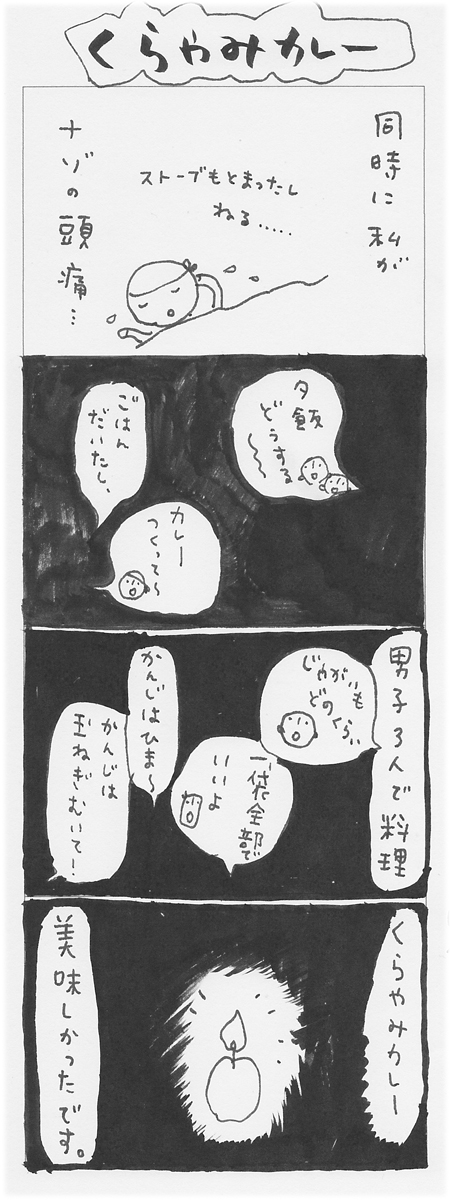 くらやみカレー
同時に私が
ストーブもとまったし
ねる.....
ナゾの頭痛…
夕飯
どうする〜
ごはん
だいたし、
カレー
つくって〜
男子3人で料理
じゃがいも
どのくらい
一袋全部で
いいよ
かんじはひま〜
かんじは
玉ねぎむいて!
くらやみカレー
美味しかったです。